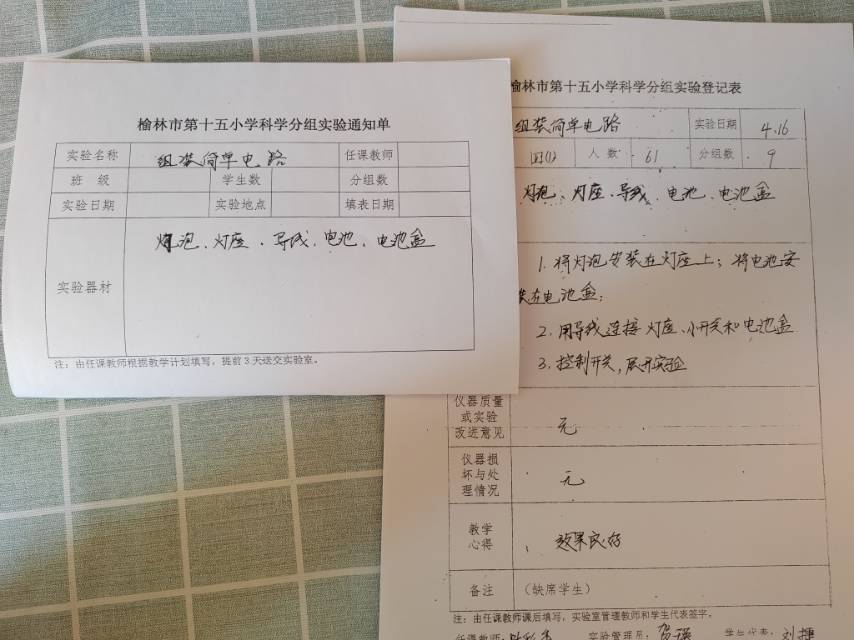 榆林市第十五小学科学分组实验通知单
实验名称 组装简单电路 任课教师
班 级 学生数 分组数
实验日期 实验地点 填表日期
实验器材 灯泡、灯座、导线、电池、电池盒
注：由任课教师根据教学计划填写，提前3天送交实验室。
榆林市第十五小学科学分组实验登记表
组装简单电路 实验日期 4.16
四(1) 人 数 61 分组数 9
灯泡、灯座、导线、电池、电池盒
1. 将灯泡安装在灯座上；将电池安
装在电池盒；
2. 用导线连接灯座、小开关和电池盒
3. 控制开关，展开实验
仪器质量
或实验
改进意见 无
仪器损
坏与处
理情况 无
教学
心得 效果良好
备注 （缺席学生）
注：由任课教师课后填写，实验室管理教师和学生代表签字。
任课教师： 实验管理员： 学生代表：